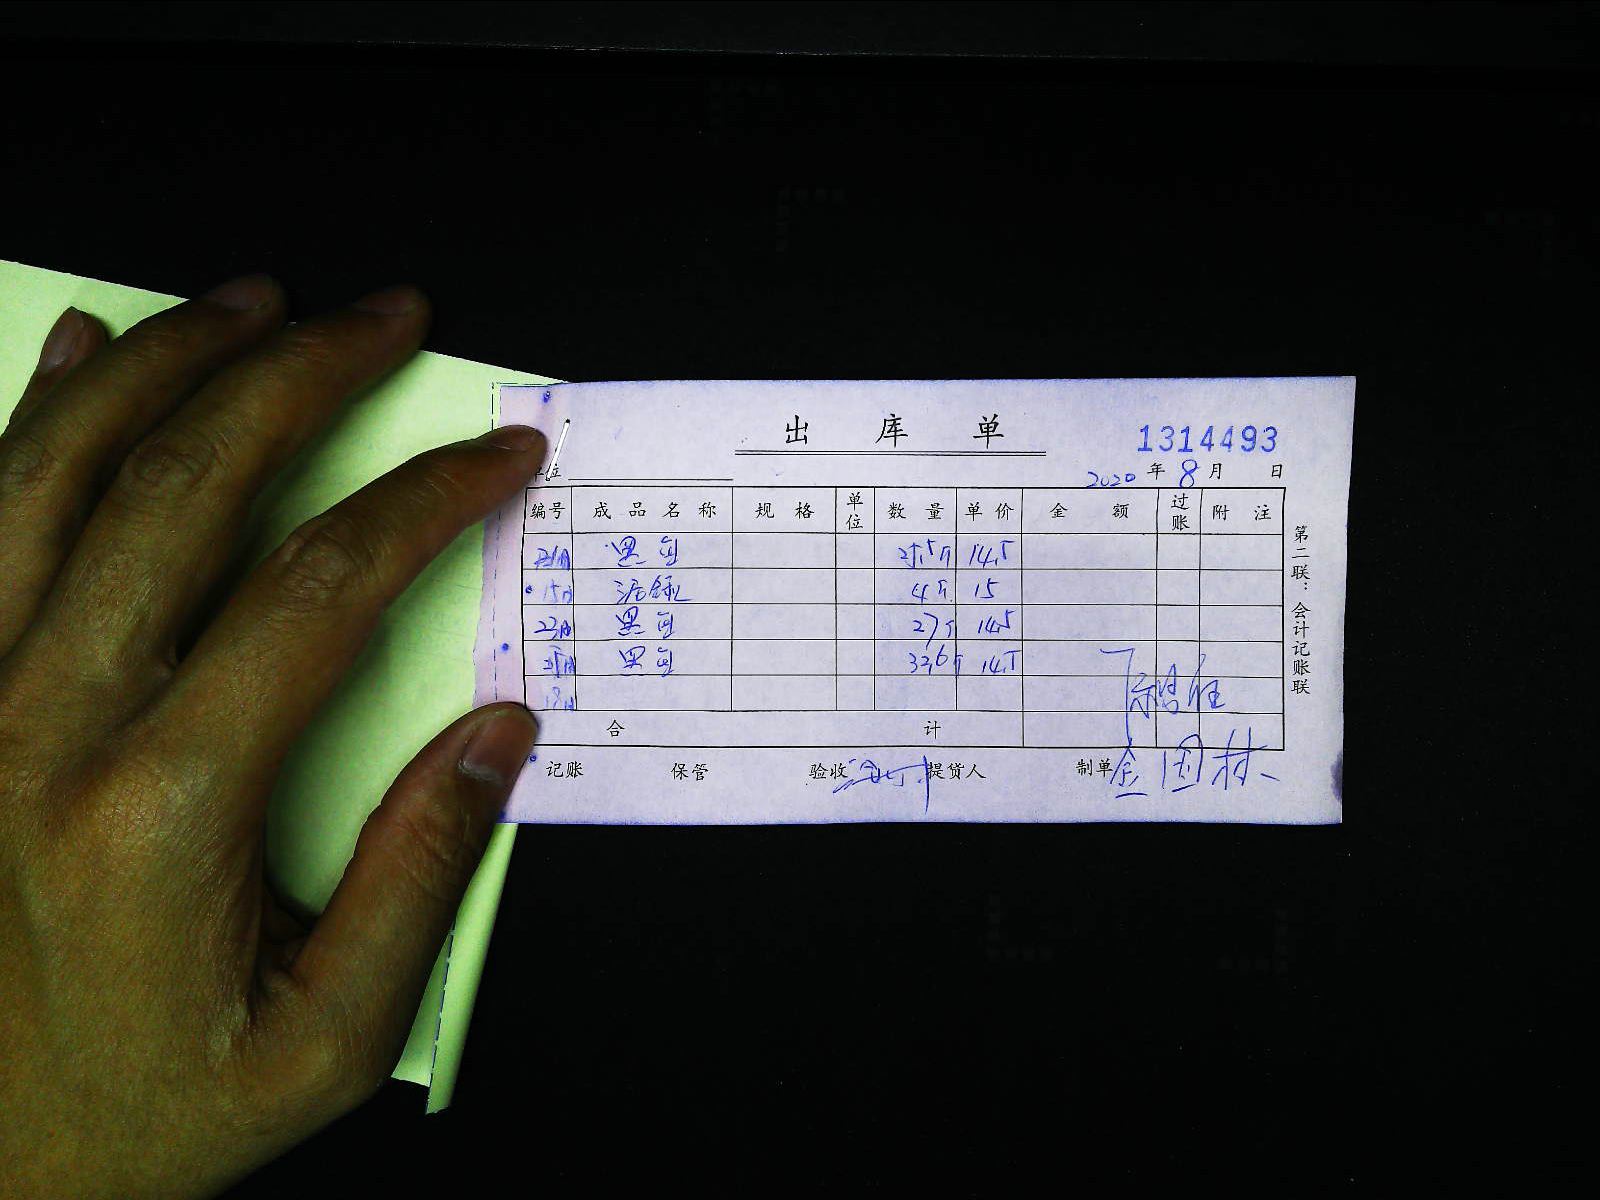 出 库 单
1314493
单位 2020 年 8 月 日
编号 成品名称 规格 单位 数量 单价 金额 过账 附注
黑鱼 25.5斤 14.5
15日 活鲈 4斤 15
23日 黑鱼 27斤 14.5
黑鱼 32.6斤 14.5
合 计
记账 保管 验收 提货人 制单 金国林
第二联：会计记账联